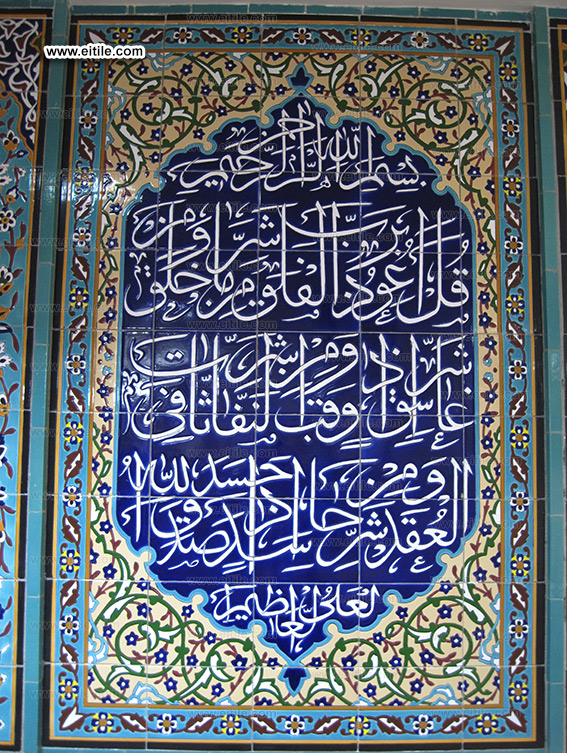 www.eitile.com
بسم الله الرحمن الرحيم
قل اعوذ برب الفلق من شر ما خلق ومن
شر غاسق اذا وقب ومن شر النفاثات في
العقد ومن شر حاسد اذا حسد صدق الله
العلي العظيم